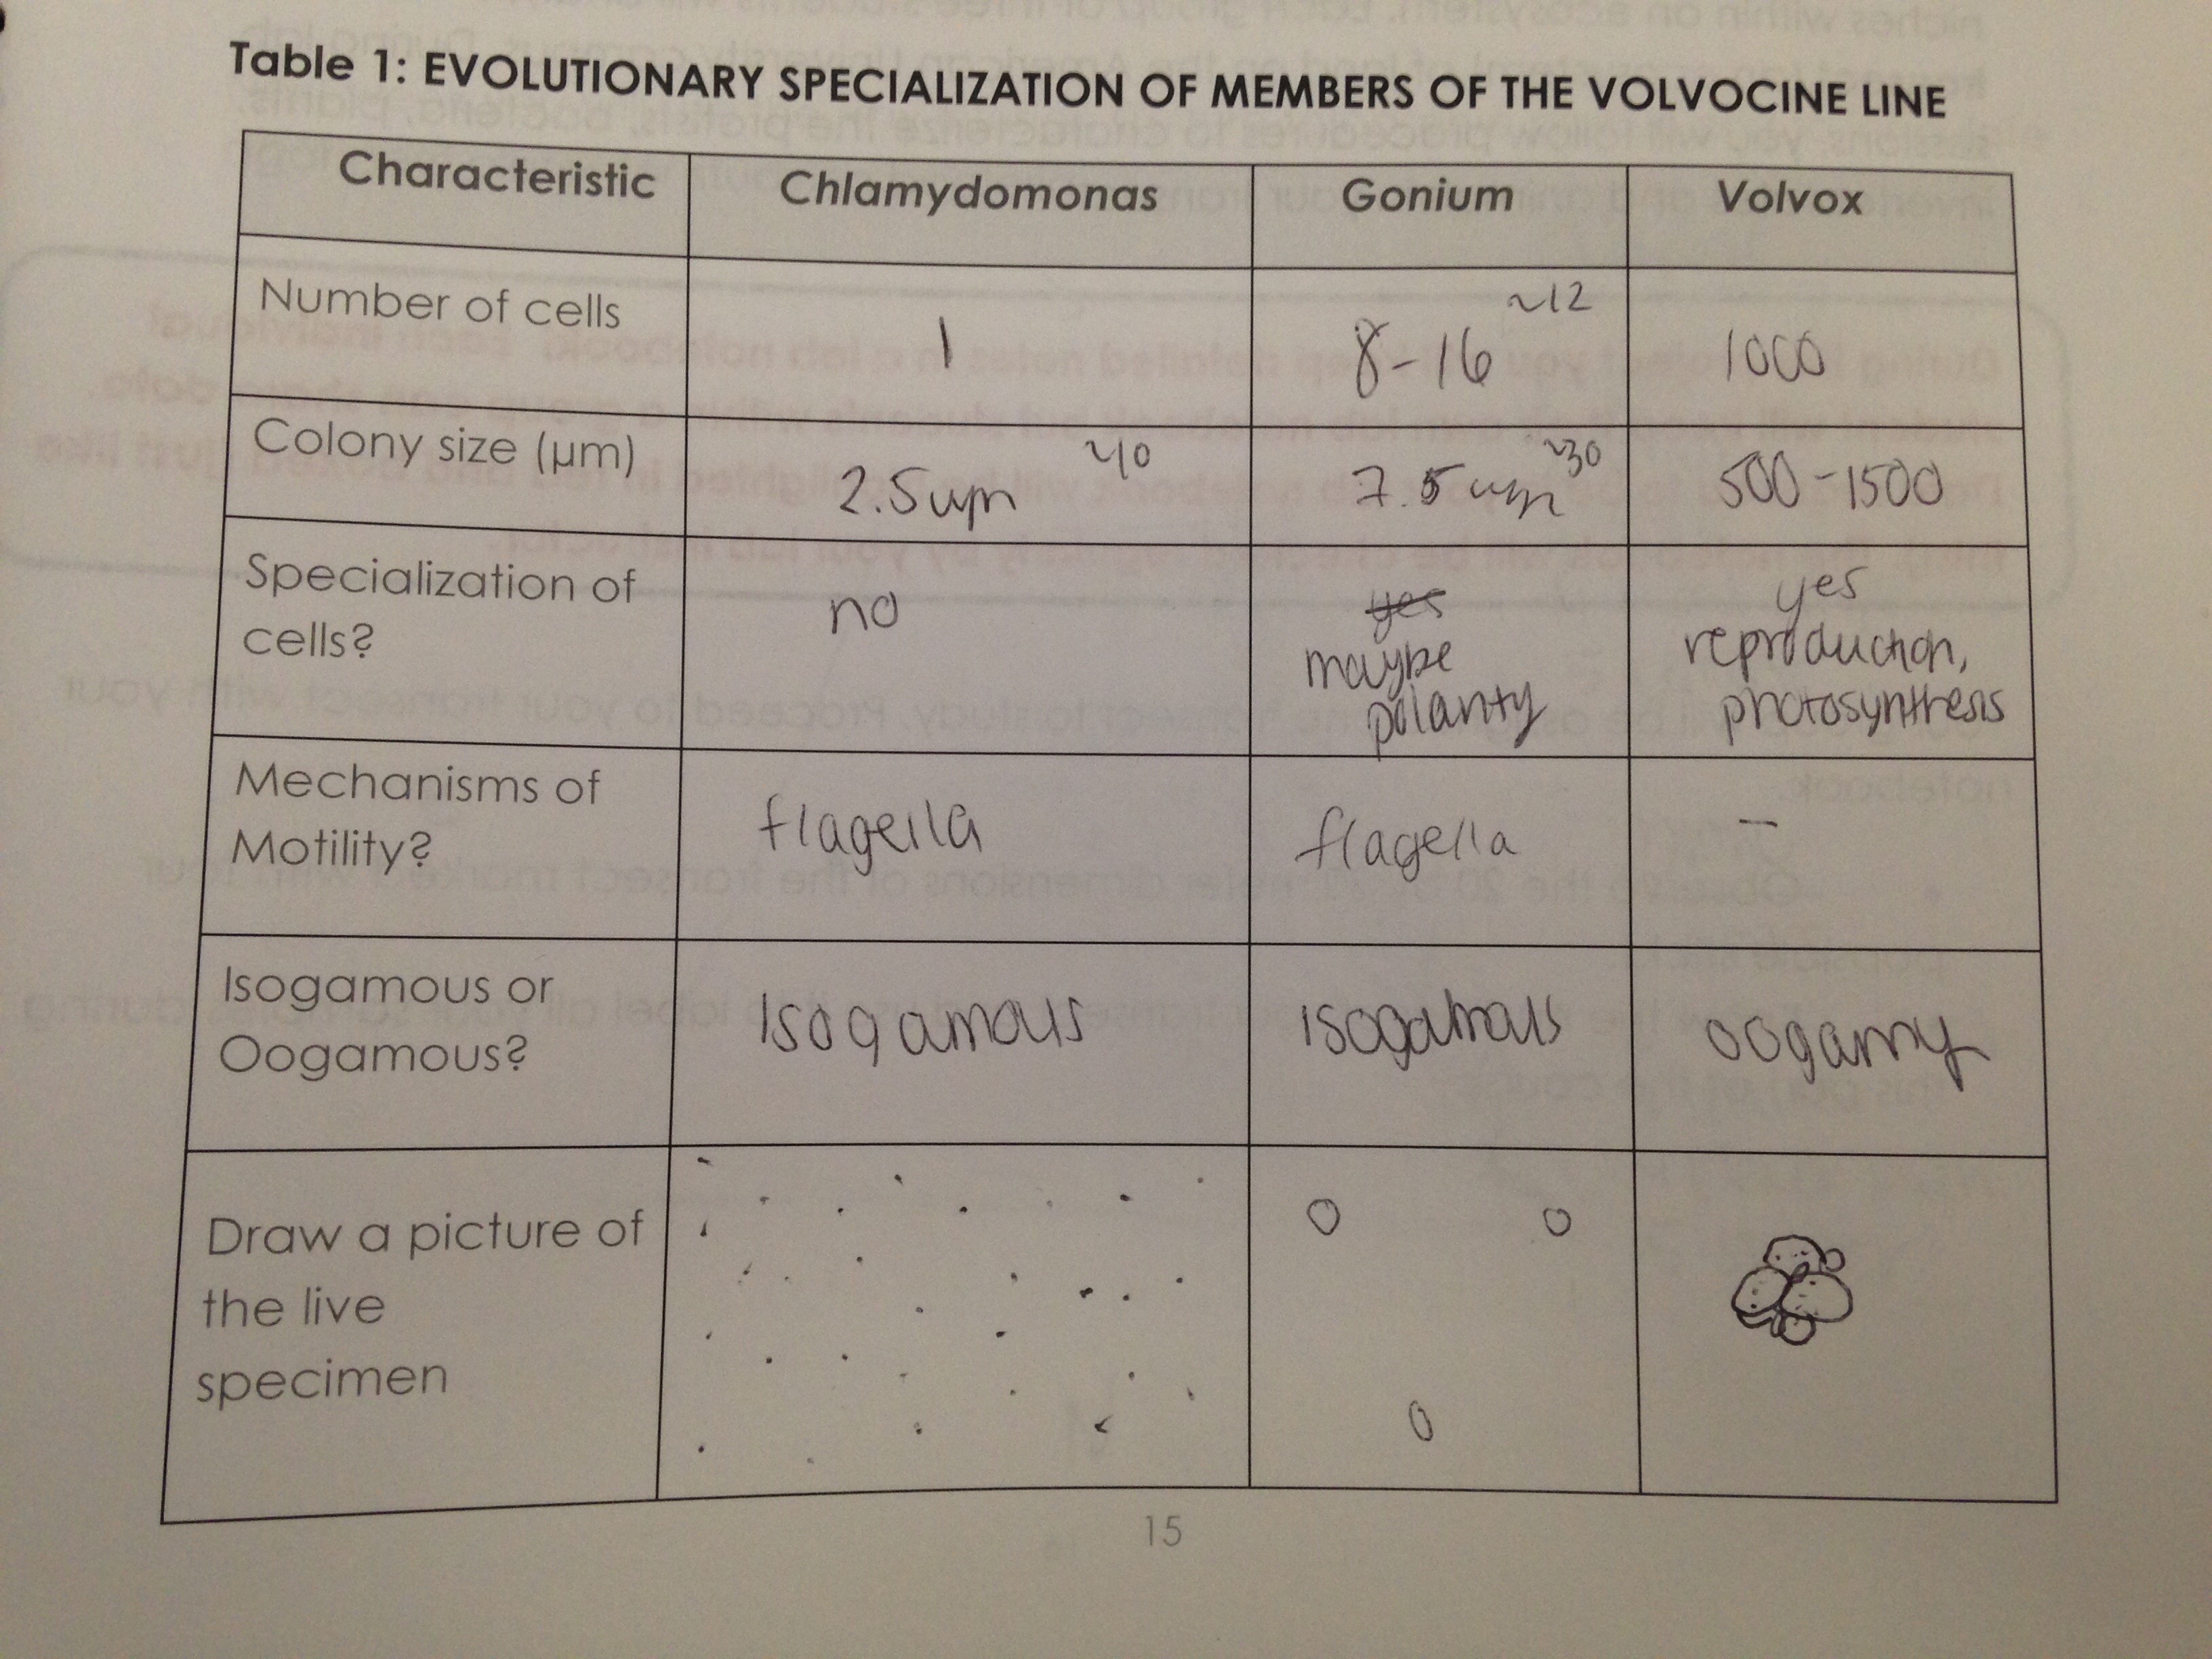 Table 1: EVOLUTIONARY SPECIALIZATION OF MEMBERS OF THE VOLVOCINE LINE
Characteristic Chlamydomonas Gonium Volvox
Number of cells 1 8-16 ~12 1000
Colony size (µm) 2.5um ~10 7.5um ~30 500-1500
Specialization of
cells?
no
yes
maybe
polarity
yes
reproduction,
photosynthesis
Mechanisms of
Motility?
flagella flagella –
Isogamous or
Oogamous?
Isogamous isogamous oogamy
Draw a picture of
the live
specimen
15